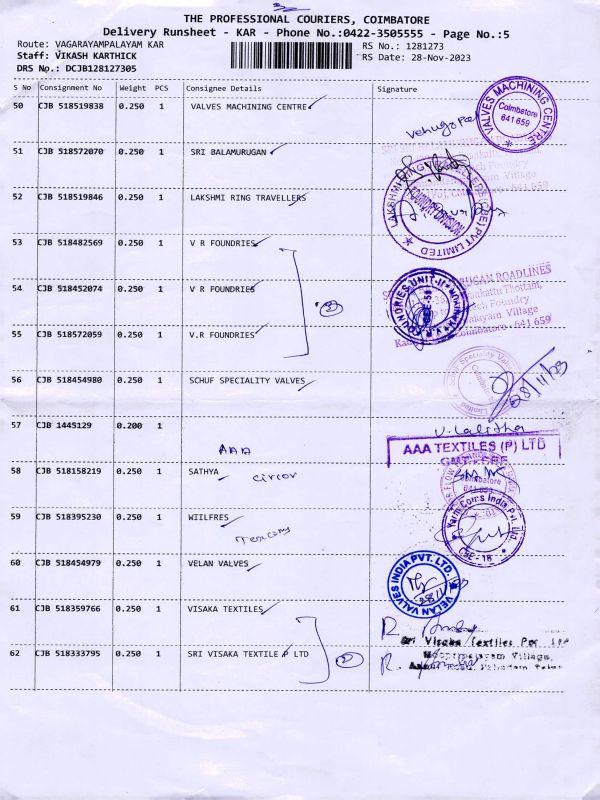 THE PROFESSIONAL COURIERS, COIMBATORE
Delivery Runsheet - KAR - Phone No.:0422-3505555 - Page No.:5
Route: VAGARAYAMPALAYAM KAR
RS No.: 1281273
Staff: VIKASH KARTHICK
RS Date: 28-Nov-2023
DRS No.: DCJB128127305
S No Consignment No Weight PCS Consignee Details Signature
50 CJB 518519838 0.250 1 VALVES MACHINING CENTRE
VALVES MACHINING CENTRE
Coimbatore
641 659
51 CJB 518572070 0.250 1 SRI BALAMURUGAN
Foundry
Village
641 659
52 CJB 518519846 0.250 1 LAKSHMI RING TRAVELLERS
LAKSHMI RING TRAVELLERS (CBE) PVT LIMITED
FOUNDRY DIVISION
53 CJB 518482569 0.250 1 V R FOUNDRIES
54 CJB 518452074 0.250 1 V R FOUNDRIES
3
V.R FOUNDRIES UNIT-II
ROADLINES
Thottam,
Foundry
Village
Coimbatore - 641 659
55 CJB 518572059 0.250 1 V.R FOUNDRIES
56 CJB 518454980 0.250 1 SCHUF SPECIALITY VALVES
Schuf Speciality Valves
28/11/23
57 CJB 1445129 0.200 1
V. Lalitha
AAA
AAA TEXTILES (P) LTD
58 CJB 518158219 0.250 1 SATHYA
Circor
Coimbatore
59 CJB 518395230 0.250 1 WIILFRES
Yarn Com's India Pvt. Ltd.
CBE-18
60 CJB 518454979 0.250 1 VELAN VALVES
VELAN VALVES INDIA PVT. LTD.
61 CJB 518359766 0.250 1 VISAKA TEXTILES
R.
Sri Visaka Textiles
62 CJB 518333795 0.250 1 SRI VISAKA TEXTILE P LTD
2
Village,
R.